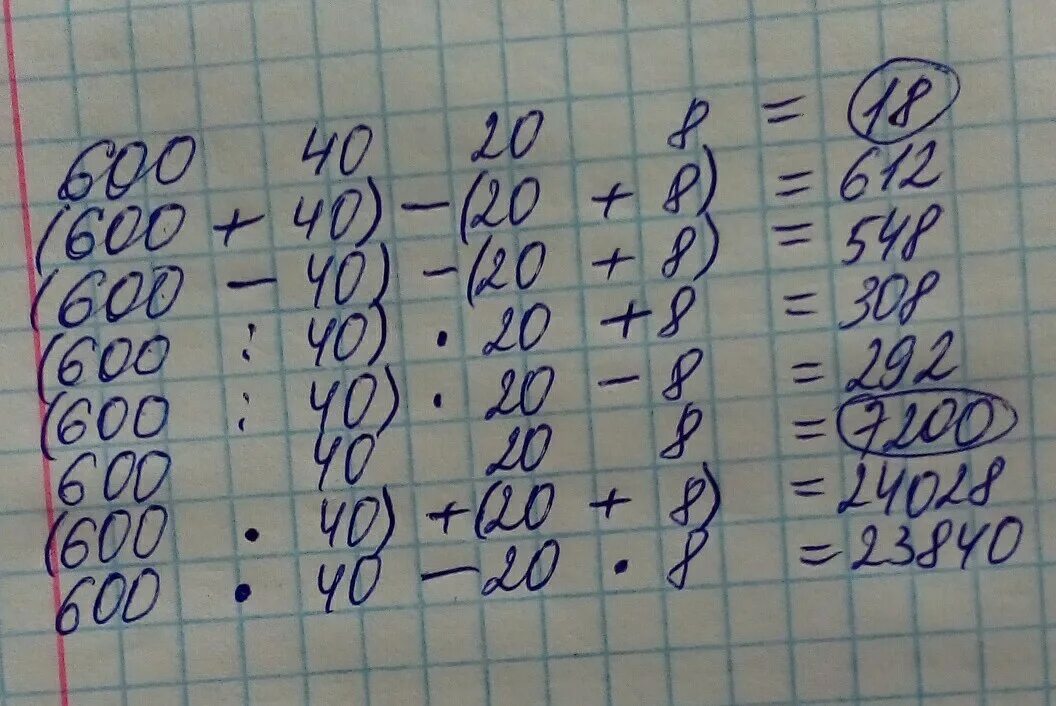 600 40 20 8 = 18
(600 + 40) - (20 + 8) = 612
(600 - 40) - (20 + 8) = 548
(600 : 40) · 20 + 8 = 308
(600 : 40) · 20 - 8 = 292
600 40 20 8 = 7200
(600 · 40) + (20 + 8) = 24028
600 · 40 - 20 · 8 = 23840